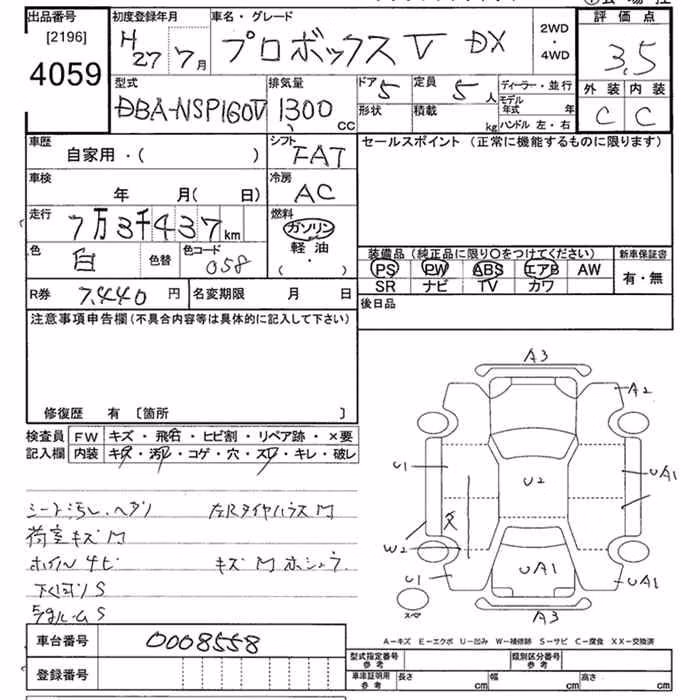 出品番号 初度登録年月 車名・グレード 評価点
[2196] H27年7月 プロボックスV DX 2WD・4WD 3.5
4059
型式 排気量 ドア 5 定員 5人 ディーラー・並行 外装 内装
DBA-NSP160V 1300 cc 形状 積載 kg モデル年式 年 C C
ハンドル 左・右
車歴 シフト セールスポイント (正常に機能するものに限ります)
自家用・( ) FAT
車検 冷房
年 月(日) AC
走行 燃料
7万3千437km ガソリン
色 色替 色コード 軽油 装備品 (純正品に限り〇をつけてください) 新車保証書
白 058 ( ・ ) PS PW ABS エアB AW 有・無
SR ナビ TV カワ
R券 7,440 円 名変期限 月 日 後日品
注意事項申告欄 (不具合内容等は具体的に記入して下さい)
修復歴 有 [箇所 ]
検査員 FW キズ・飛石・ヒビ割・リペア跡・×要
記入欄 内装 キズ・汚レ・コゲ・穴・スレ・キレ・破レ
シート汚レ、ヘタリ 左RタイヤハウスM
荷室キズM
ホイルサビ キズM
下廻りS
S
A3
A2
U1 U2 UA1
W2
U1 UA1 UA1
スペ A3
A-キズ E-エクボ U-凹み W-補修跡 S-サビ C-腐食 XX-交換済
車台番号 0008558
登録番号
型式指定番号 参考 類別区分番号 参考
車庫証明用 参考 長さ cm 幅 cm 高さ cm